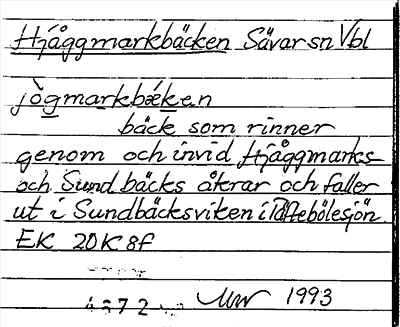 Hjåggmarkbäcken Sävar sn Vbl
jògmarkbǽk̲e.n
bäck som rinner
genom och invid Hjåggmarks
och Sundbäcks åkrar och faller
ut i Sundbäcksviken i Täftebölesjön.
EK 20K 8f
4872
1993